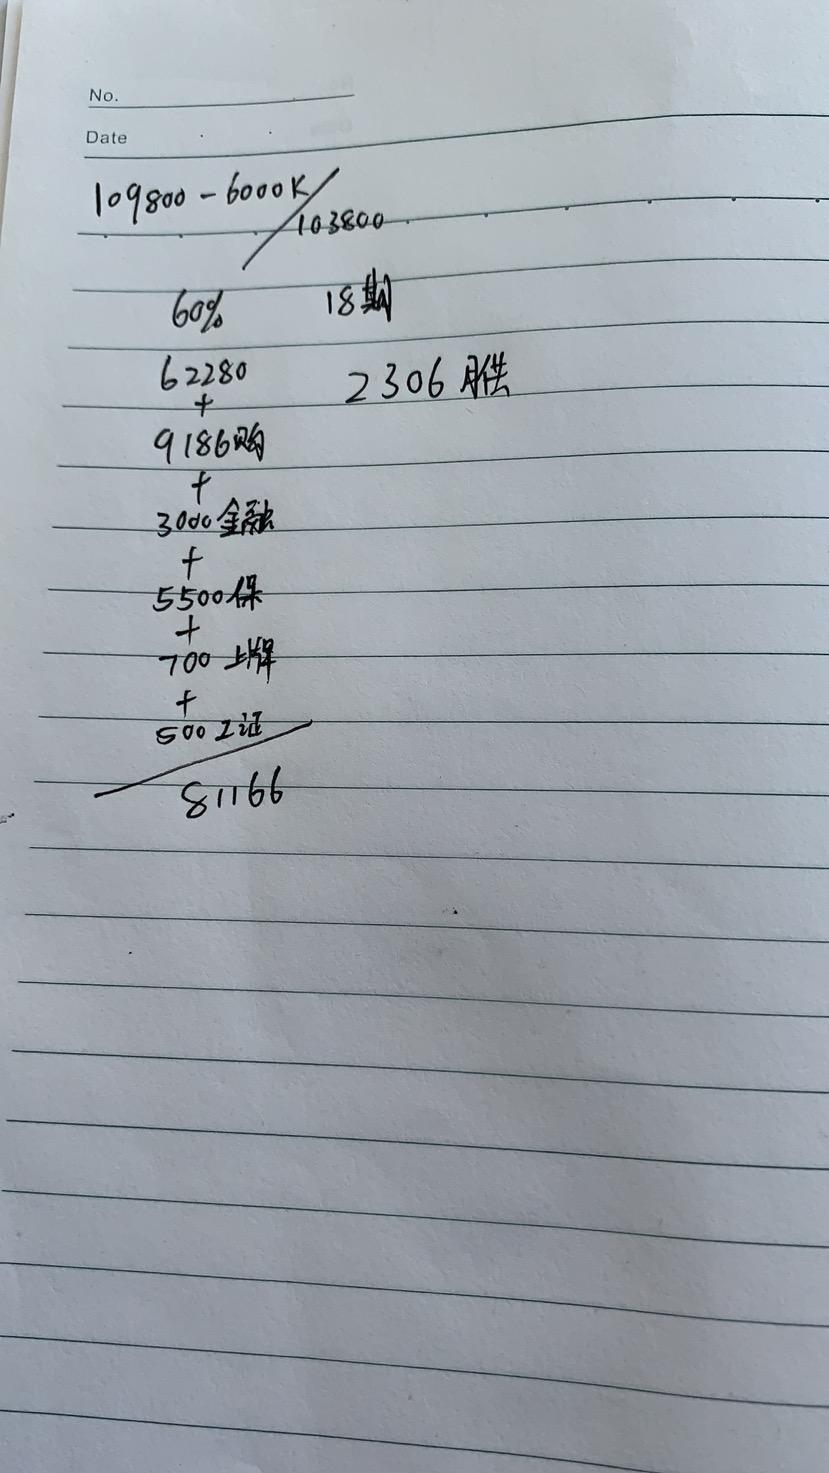 No.
Date
109800-6000K
103800
60% 18期
62280 2306月供
+
9186购
+
3000金融
+
5500保
+
700上牌
+
500工证
81166